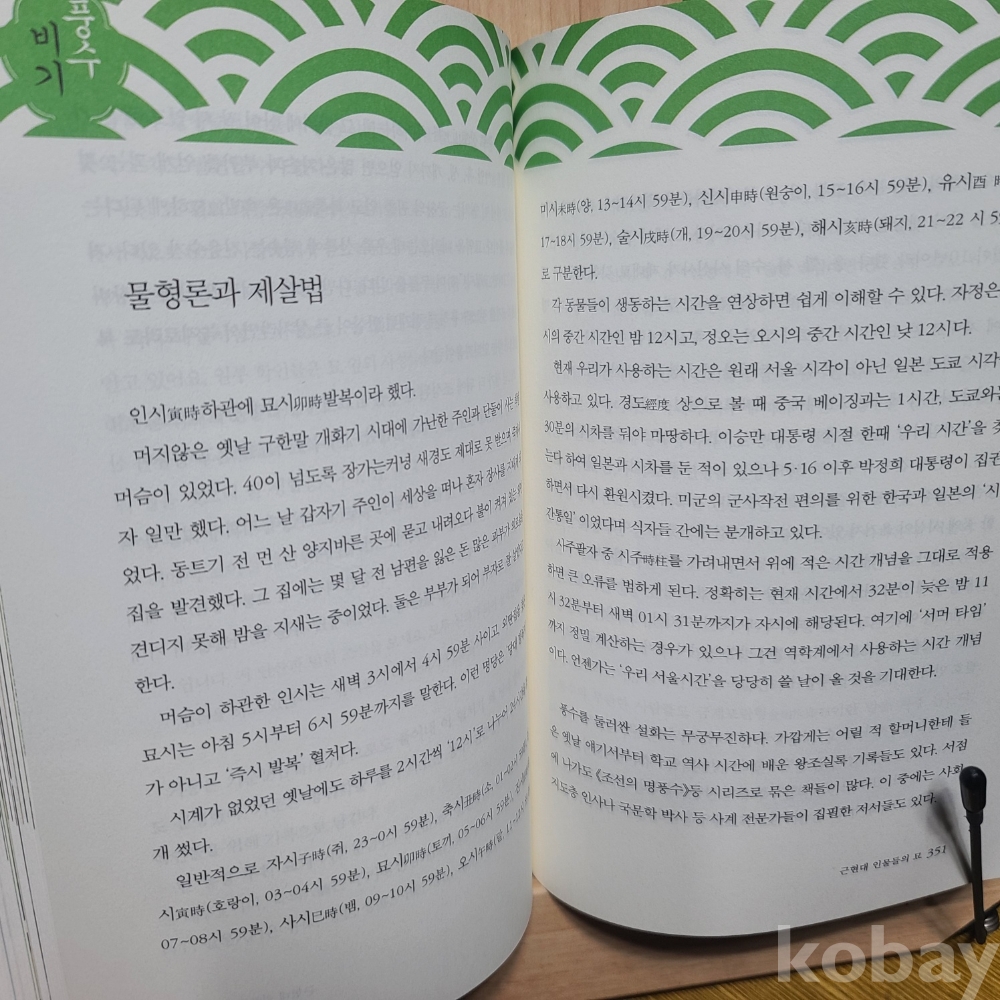 풍수
비기
물형론과 제살법
인시寅時하관에 묘시卯時발복이라 했다.
머지않은 옛날 구한말 개화기 시대에 가난한 주인과 단둘이 사는
머슴이 있었다. 40이 넘도록 장가는커녕 새경도 제대로 못 받으며
자 일만 했다. 어느 날 갑자기 주인이 세상을 떠나 혼자 장사를
었다. 동트기 전 먼 산 양지바른 곳에 묻고 내려오다 불이 켜져 있는
집을 발견했다. 그 집에는 몇 달 전 남편을 잃은 돈 많은 과부가
견디지 못해 밤을 지새는 중이었다. 둘은 부부가 되어 부자로
한다.
머슴이 하관한 인시는 새벽 3시에서 4시 59분 사이고,
묘시는 아침 5시부터 6시 59분까지를 말한다. 이런 명당은
가 아니고 ‘즉시 발복’ 혈처다.
시계가 없었던 옛날에도 하루를 2시간씩 ‘12시’로 나누어
개 썼다.
일반적으로 자시子時(쥐, 23~0시 59분), 축시丑時(소, 01~02시
시寅時(호랑이, 03~04시 59분), 묘시卯時(토끼, 05~06시 59분),
07~08시 59분), 사시巳時(뱀, 09~10시 59분), 오시午時(말, 11~12시
미시未時(양, 13~14시 59분), 신시申時(원숭이, 15~16시 59분), 유시酉
17~18시 59분), 술시戌時(개, 19~20시 59분), 해시亥時(돼지, 21~22 시
로 구분한다.
각 동물들이 생동하는 시간을 연상하면 쉽게 이해할 수 있다. 자정은
시의 중간 시간인 밤 12시고, 정오는 오시의 중간 시간인 낮 12시다.
현재 우리가 사용하는 시간은 원래 서울 시각이 아닌 일본 도쿄 시각
사용하고 있다. 경도經度 상으로 볼 때 중국 베이징과는 1시간, 도쿄와는
30분의 시차를 둬야 마땅하다. 이승만 대통령 시절 한때 ‘우리 시간’을
는다 하여 일본과 시차를 둔 적이 있으나 5·16 이후 박정희 대통령이 집권
하면서 다시 환원시켰다. 미군의 군사작전 편의를 위한 한국과 일본의 ‘시
간통일’이었다며 식자들 간에는 분개하고 있다.
사주팔자 중 시주時柱를 가려내면서 위에 적은 시간 개념을 그대로 적용
하면 큰 오류를 범하게 된다. 정확히는 현재 시간에서 32분이 늦은 밤 11
시 32분부터 새벽 01시 31분까지가 자시에 해당된다. 여기에 ‘서머 타임’
까지 정밀 계산하는 경우가 있으나 그건 역학계에서 사용하는 시간 개념
이다. 언젠가는 ‘우리 서울시간’을 당당히 쓸 날이 올 것을 기대한다.
풍수를 둘러싼 설화는 무궁무진하다. 가깝게는 어릴 적 할머니한테 들
은 옛날 얘기서부터 학교 역사 시간에 배운 왕조실록 기록들도 있다. 서점
에 나가도 《조선의 명풍수》등 시리즈로 묶은 책들이 많다. 이 중에는 사회
지도층 인사나 국문학 박사 등 사계 전문가들이 집필한 저서들도 있다.
근현대 인물들의 묘 351
kobay